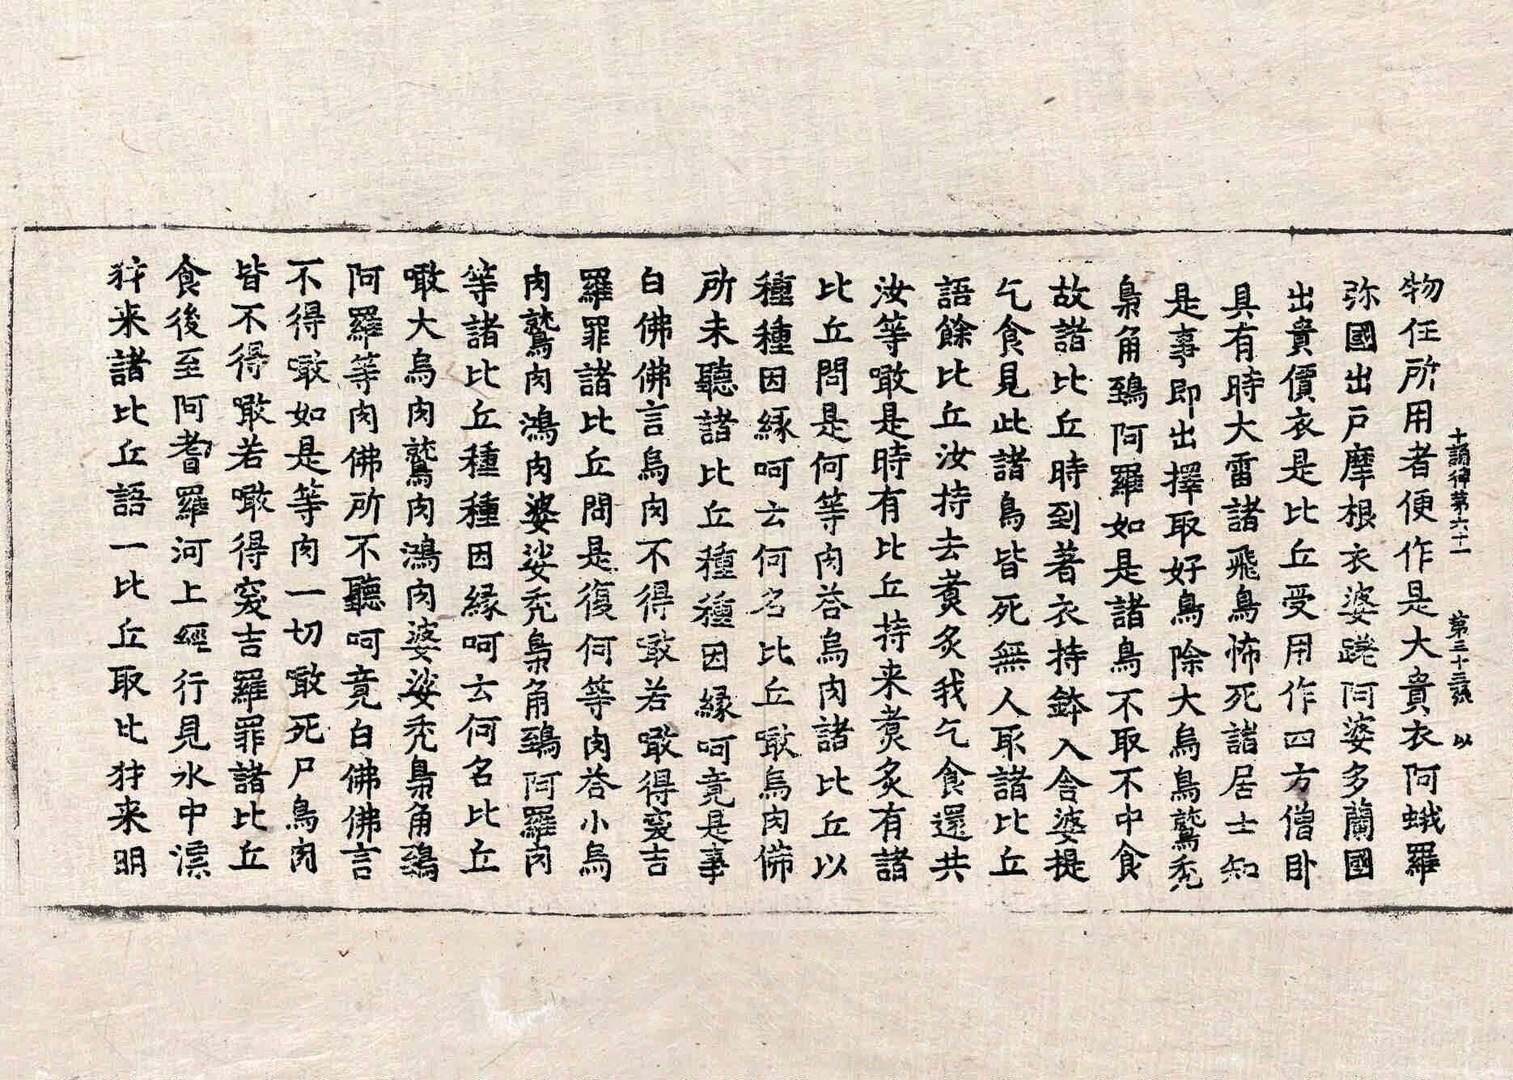 十誦律第六十一　第三十三張　以
物任所用者便作是大貴衣阿蛾羅
弥國出戸摩根衣婆蹉阿婆多蘭國
出貴價衣是比丘受用作四方僧卧
具有時大雷諸飛鳥怖死諸居士知
是事即出擇取好鳥除大烏鳥鷲禿
梟角鵄阿羅如是諸鳥不取不中食
故諸比丘時到著衣持鉢入舍婆提
乞食見此諸鳥皆死無人取諸比丘
語餘比丘汝持去煑炙我乞食還共
汝等噉是時有比丘持来煑炙有諸
比丘問是何等肉荅烏肉諸比丘以
種種因緣呵云何名比丘噉烏肉佛
所未聽諸比丘種種因緣呵竟是事
白佛佛言烏肉不得噉若噉得窔吉
羅罪諸比丘問是復何等肉荅小烏
肉鷲肉鴻肉婆娑禿梟角鵄阿羅肉
等諸比丘種種因緣呵云何名比丘
噉大烏肉鷲肉鴻肉婆娑禿梟角鵄
阿羅等肉佛所不聽呵竟白佛佛言
不得噉如是等肉一切噉死尸鳥肉
皆不得噉若噉得窔吉羅罪諸比丘
食後至阿耆羅河上經行見水中漂
犲来諸比丘語一比丘取比犲来明